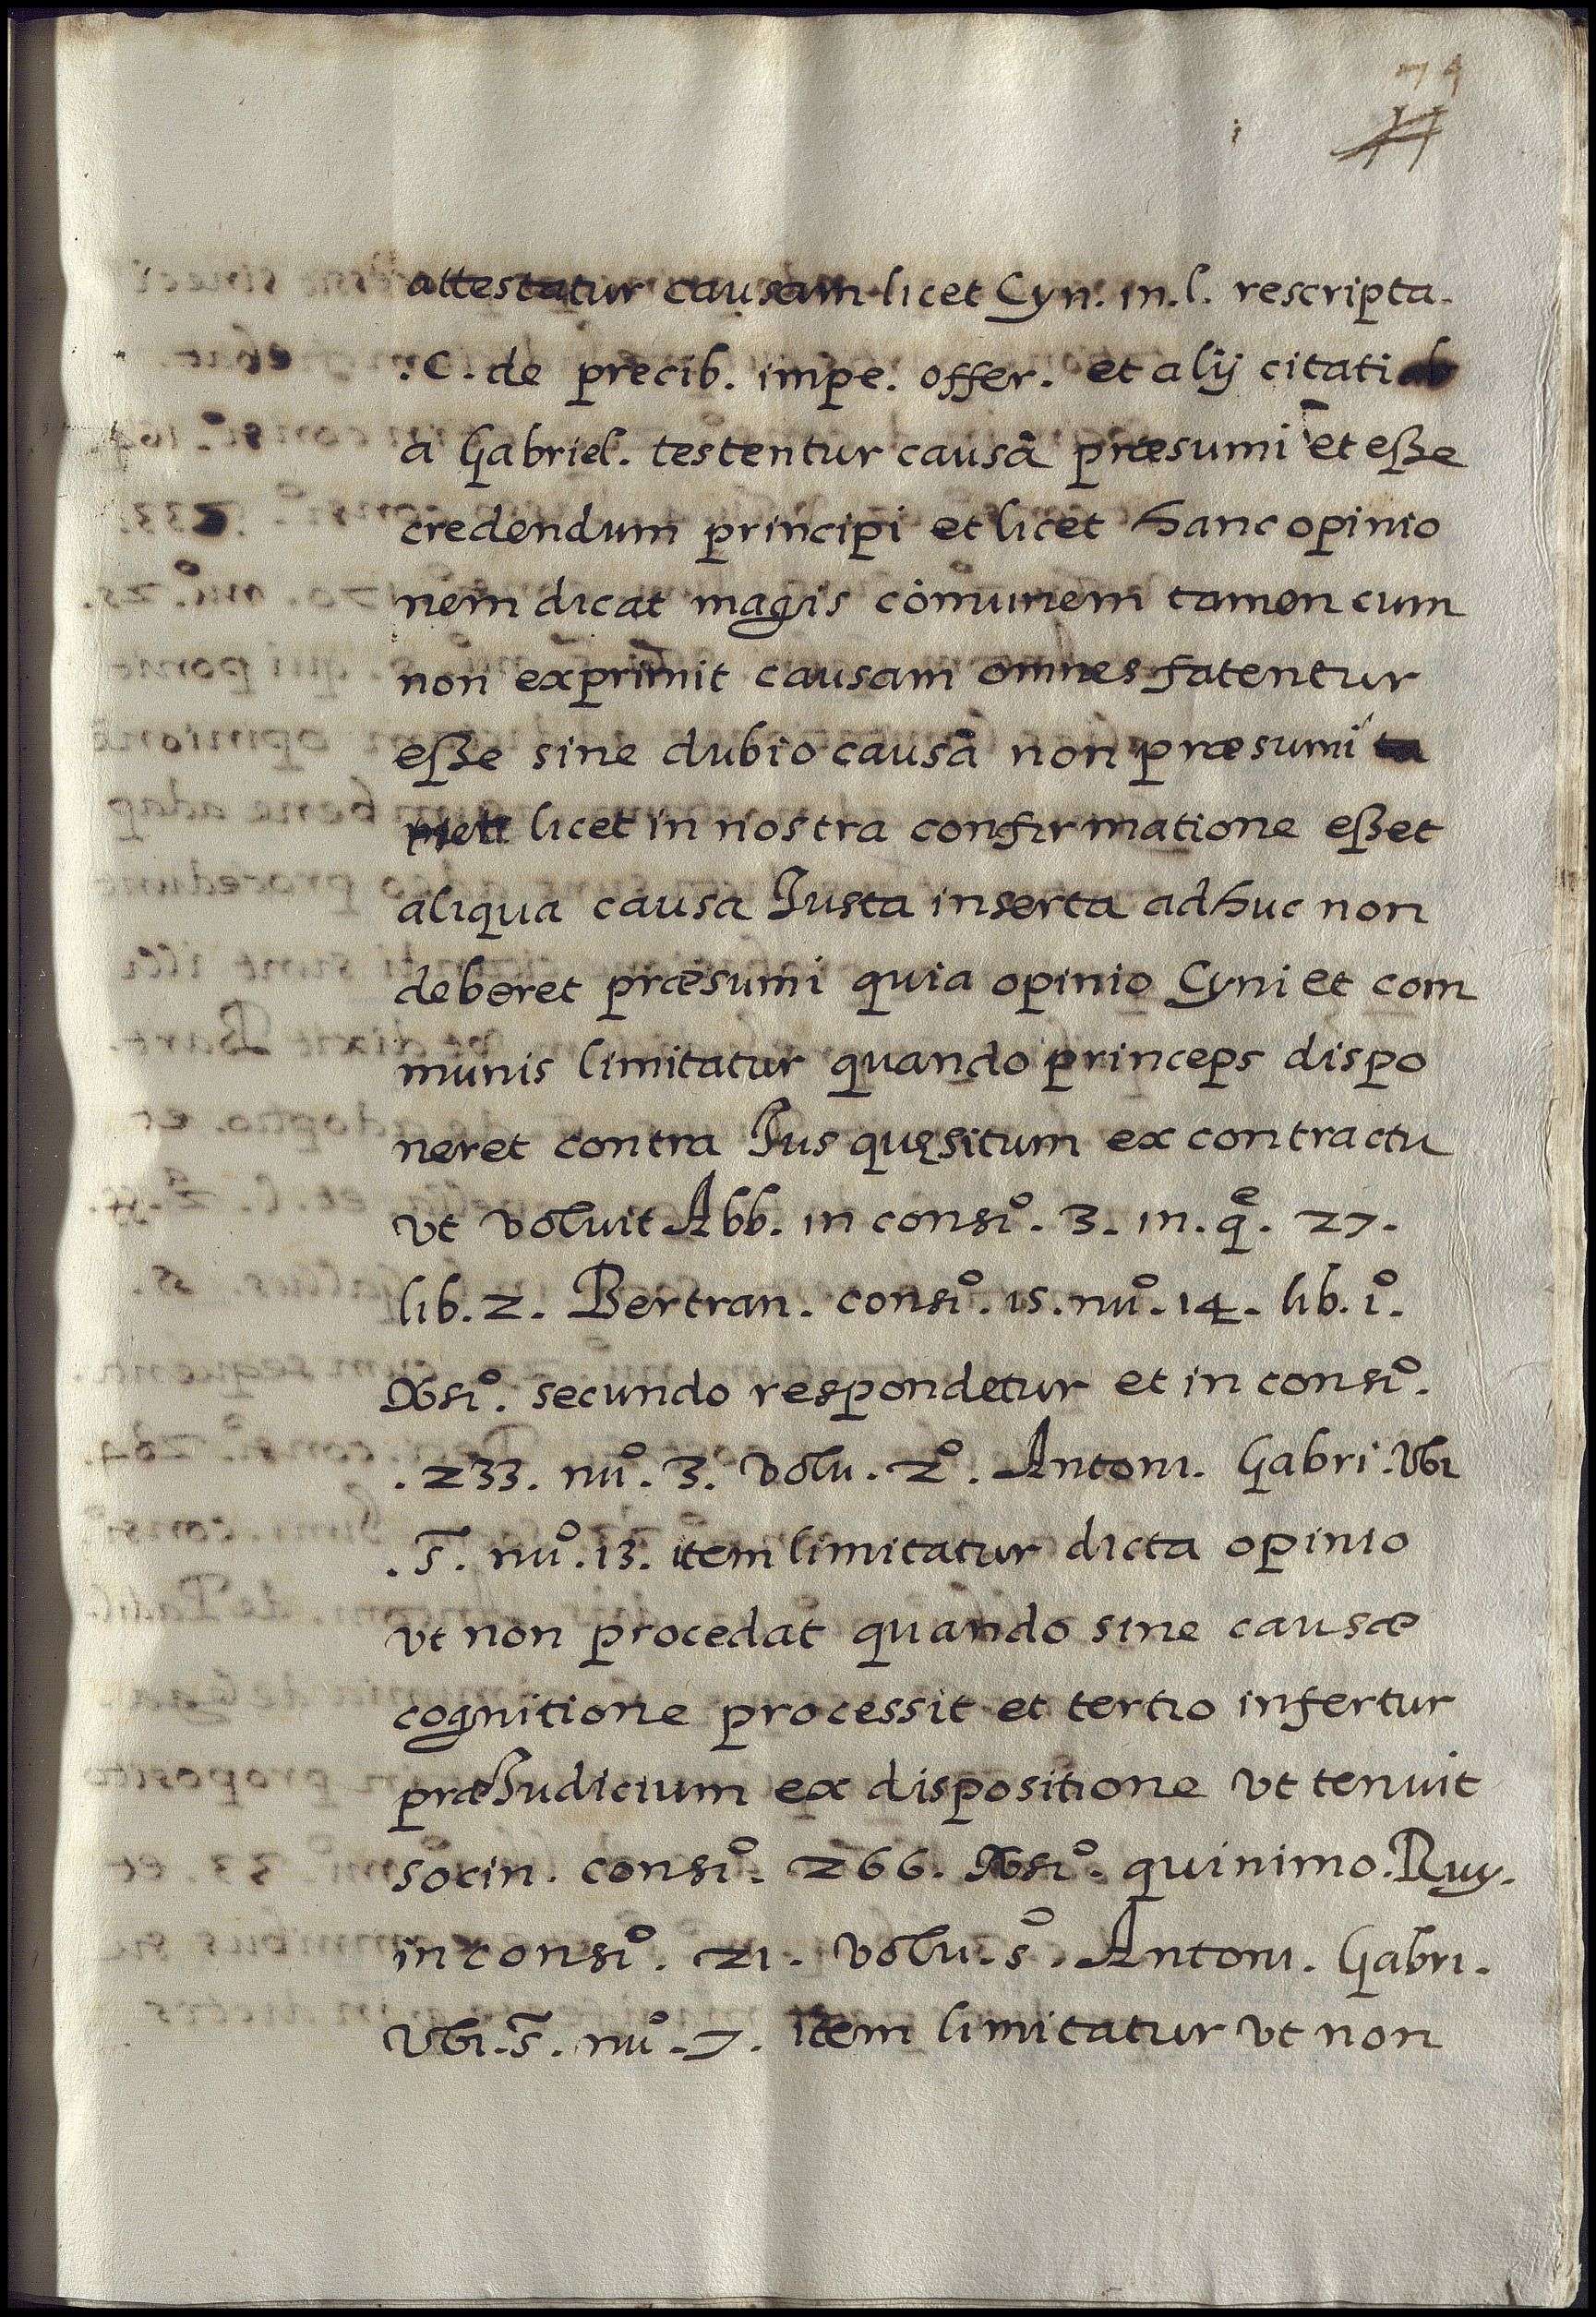 79
attestatur causam licet Cyn. in. l. rescripta.
.C. de precib. impe. offer. et alij citati
a Gabriel. testentur causā præsumi et eße
credendum principi et licet hanc opinio
nem dicat magis cōmunem tamen cum
non exprimit causam omnes fatentur
eße sine dubio causā non præsumi
licet in nostra confirmatione eßet
aliqua causa Iusta inserta adhuc non
deberet præsumi quia opinio Cyni et com
munis limitatur quando princeps dispo
neret contra Ius quęsitum ex contractu
vt voluit Abb. in consiº. 3. in. qͤ. 27.
lib. 2. Bertran. consiº. 15. nuº. 14. lib. 1º.
secundo respondetur et in consiº.
.233. nuº. 3. volu. 2º. Antoni. Gabri. vbi
.s̄. nuº. 13. item limitatur dicta opinio
vt non procedat quando sine causæ
cognitione processit et tertio infertur
præIudicium ex dispositione vt tenuit
socin. consiº. 266. quinimo. Ruy.
in consiº. 21. volu. sº. Antoni. Gabri.
vbi. s̄. nuº. 7. item limitatur vt non